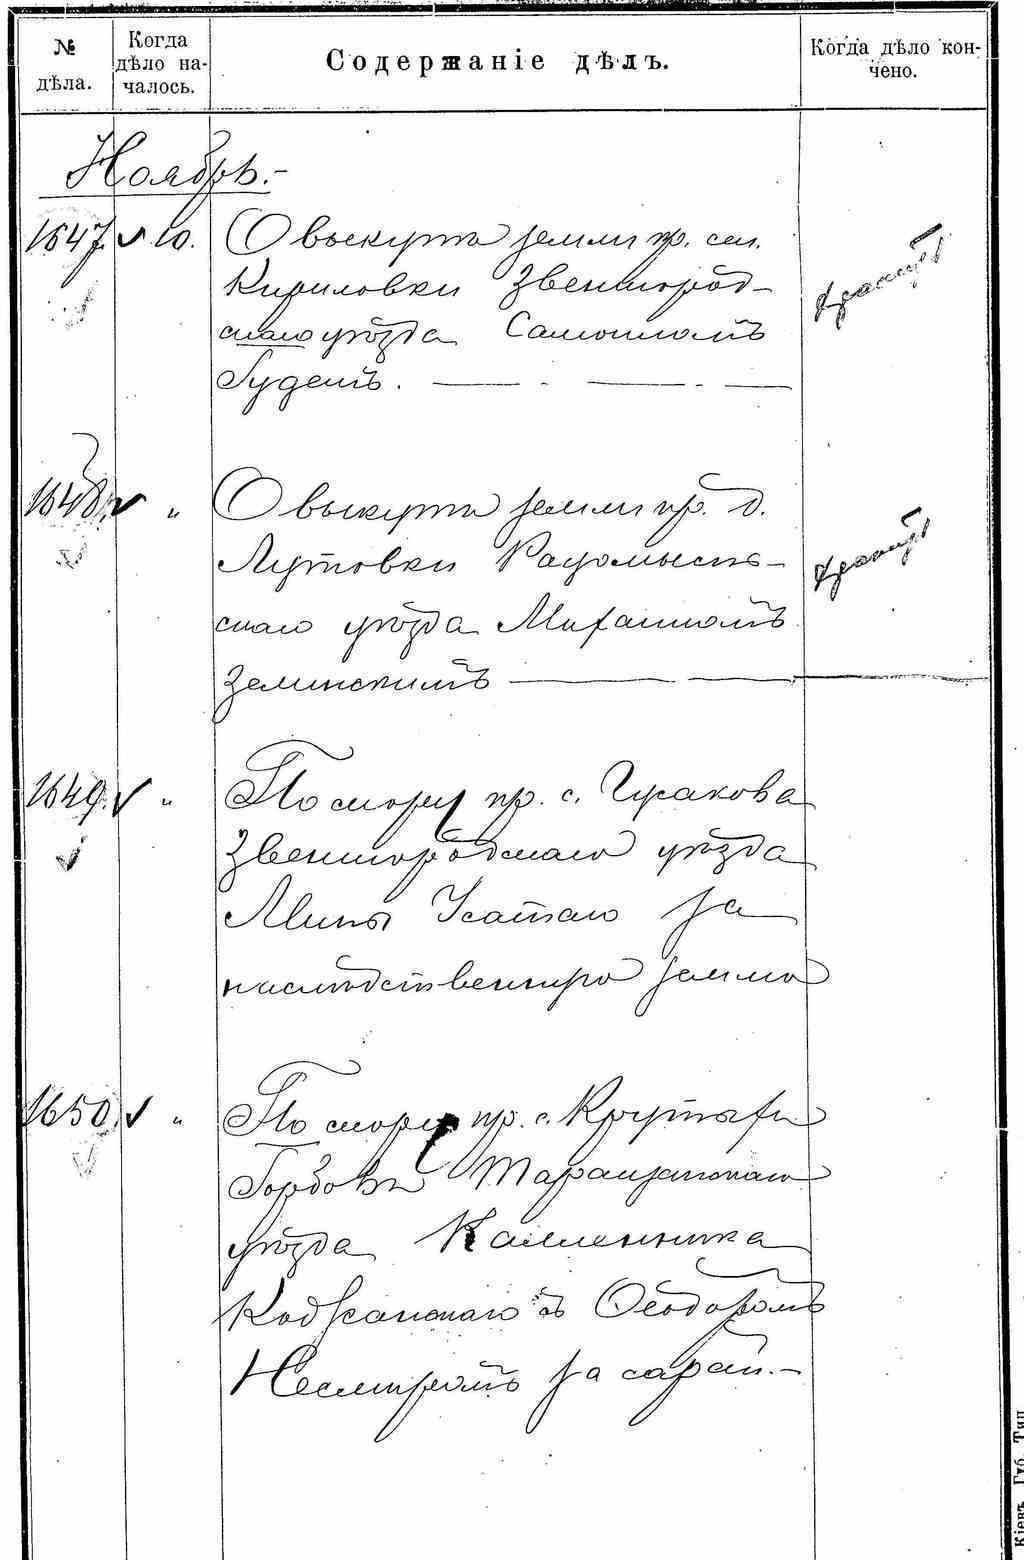 № дѣла.
Когда дѣло на-
чалось.
Содержаніе дѣлъ.
Когда дѣло кон-
чено.
Ноябрь.-
1647. 10. О выкупѣ земли кр. сел.
Кириловки Звенигород-
скаго уѣзда Самоиломъ
Гудемъ.
1648. " О выкупѣ земли кр. д.
Лутовки Радомысль-
скаго уѣзда Михаиломъ
Зелинскимъ
1649. " По спору кр. с. Гусакова
Звенигородскаго уѣзда
Мины Усатаго за
наслѣдственную землю
1650. " По спору кр. с. Крутыхъ
Горбовъ Таращанскаго
уѣзда Калленника
Коджанскаго съ Ѳеодоромъ
за сарай.-
Кіевъ, Гѵб. Тип.